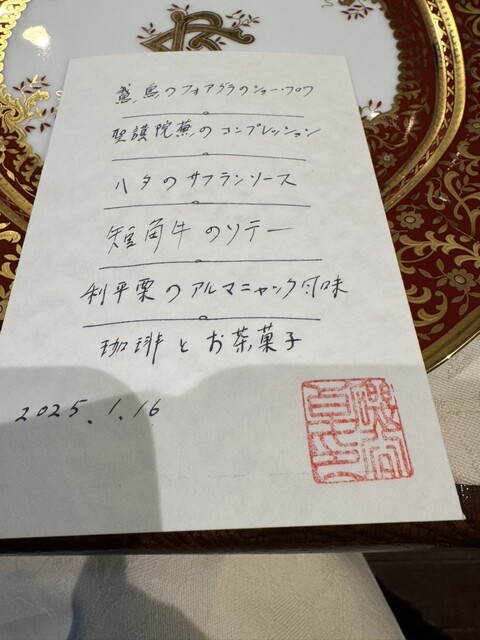 鵞鳥のフォアグラのショー・フロワ
聖護院蕪のコンプレッション
ハタのサフランソース
短角牛のソテー
利平栗のアルマニャック風味
珈琲とお茶菓子
2025.1.16